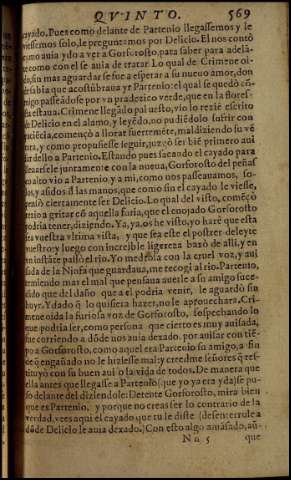 QVINTO. 569
cayado. Pues como delante de Partenio llegassemos y le
viessemos solo, le preguntamos por Delicio. El nos contò
como auia ydo a ver a Gorforosto, para saber para adelã-
te como con el se auia de tratar. Lo qual de Crimene oi-
do, sin mas aguardar se fue a esperar a su nueuo amor, don
de sabia que acostũbraua yr Partenio: el qual se quedò cõ-
migo passeãdose por vn pradezico verde, que en la flores-
ta estaua. Crimene llegãdo pal uesto, vio lo rezié escrito
de Delicio en el alamo, y leyêdo, no pudiêdolo sufrir con
paciêcia, començò a llorar fuertemête, maldiziendo su vê
tura, y como propusiesse seguir, juzgò ser biẽ primero aui
sar dello a Partenio. Estando pues sacando el cayado para
lleuarsele juntamente con la nueua, Gorforosto del peñas
co alto vio a Partenio y a mi, como nos passeauamos, so-
los, y asidos d̃ las manos, que como sin el cayado le viesse,
pensò ciertamente ser Delicio. Lo qual del visto, començò
luego a gritar cõ aquella furia, que el enojado Gorforosto
podria tener, dizjendo. Ya, ya os he visto, yo harè que esta
sea vuestra vltima vista, y que sea este el postrer deleyte
vuestro: y luego con increible ligereza baxò de alli, y en
vn instãte passò el rio. Yo medrosa con la cruel voz, y aui
sada de la Ninfa que guardaua, me recogi al rio. Partenio,
temiendo mas el mal que pensaua auerle a su amigo suce-
dido que del daño que a el podria venir, le aguardò sin
huyr. Y dado q̃ lo quisiera hazer, no le aprouechara. Cri-
mene oida la furiosa voz de Gorforosto, sospechando lo
que podria ser, como persona que cierto es muy auisada,
fue corriendo a dõde nos auia dexado, por auisar con tiẽ-
po a Gorforosto, como aquel era Partenio su amigo, a fin
que engañado no le hiziesse mal: y creedme señores q̃ res-
tituyò con su buen aui o la vida de todos. De manera que
ella antes que llegasse a Partenio (que yo ya era yda) se pu-
so delante del diziendole: Detente Gorforosto, mira bien
que es Partenio, y porque no creas ser lo contrario de la
verdad, vees aqui el cayado que tu le diste (desenterrole a
dõde Delicio le auia dexado.) Con esto algo amãsado, aũ-
Nn 5 que